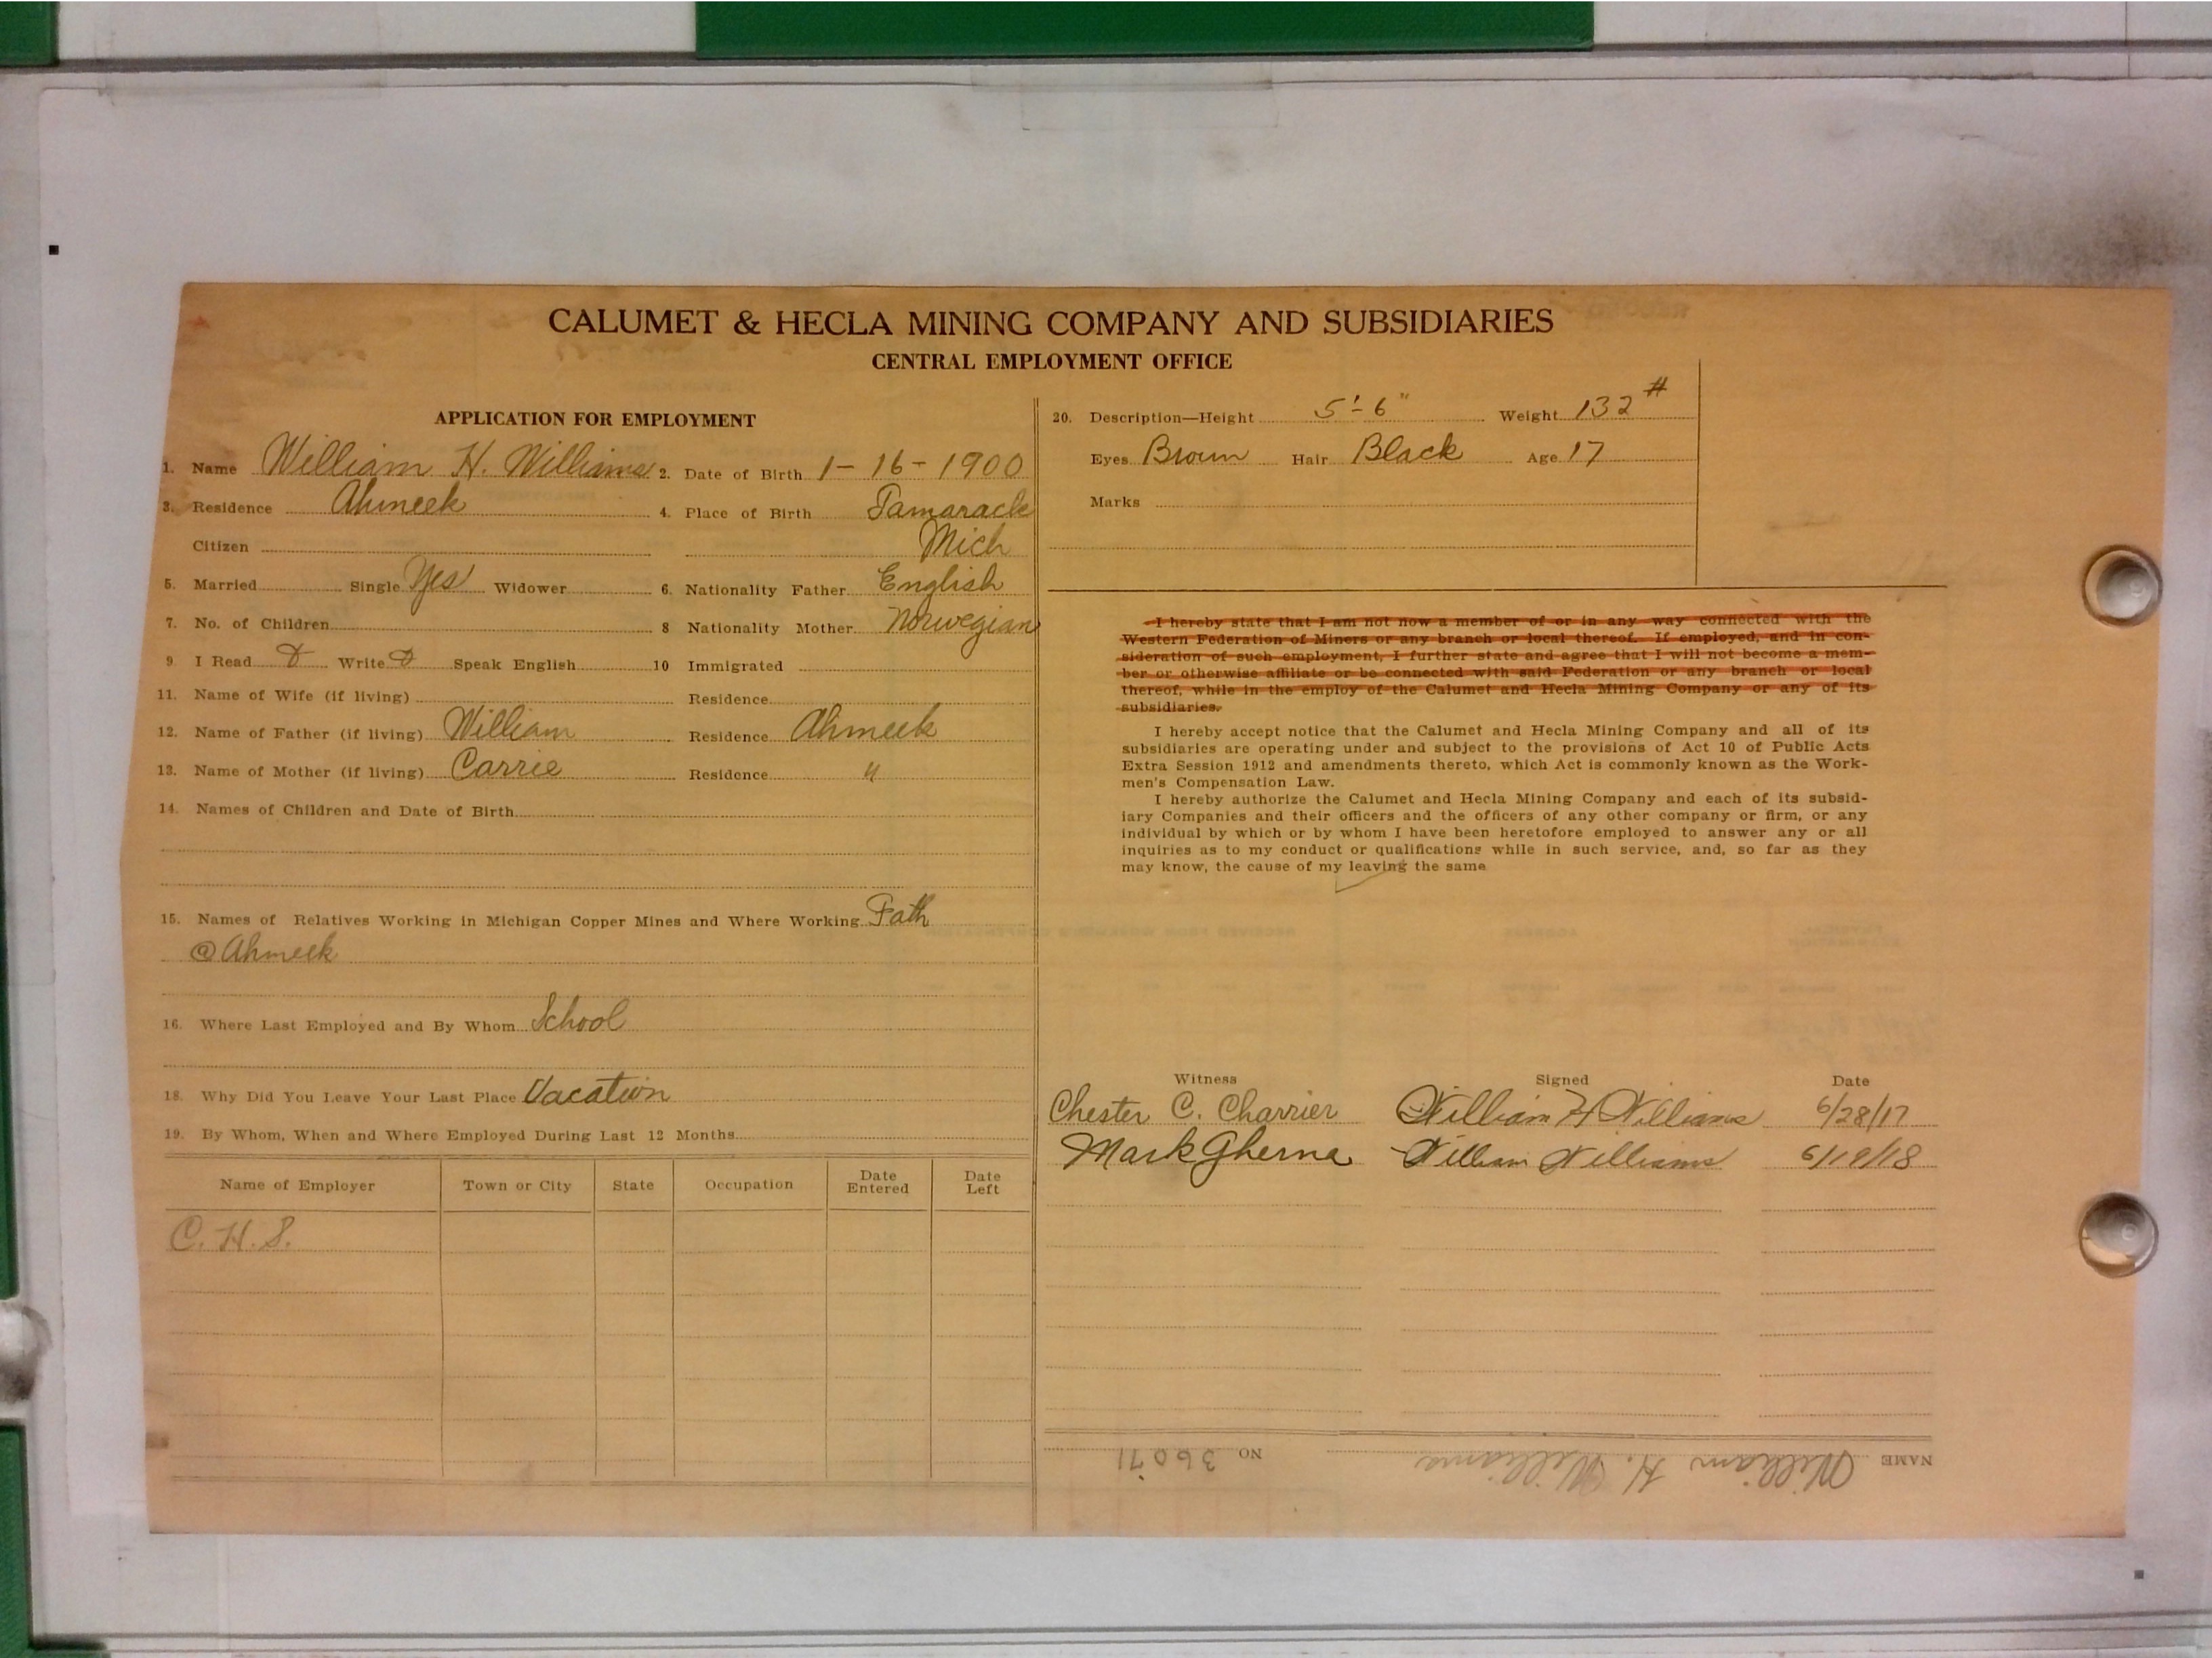 CALUMET & HECLA MINING COMPANY AND SUBSIDIARIES
CENTRAL EMPLOYMENT OFFICE
APPLICATION FOR EMPLOYMENT
1. Name William H. Williams 2. Date of Birth 1-16-1900
3. Residence Ahmeek 4. Place of Birth Tamarack
Citizen Mich
5. Married Single Yes Widower 6. Nationality Father English
7. No. of Children 8 Nationality Mother Norwegian
9 I Read Write Speak English 10 Immigrated
11. Name of Wife (if living) Residence
12. Name of Father (if living) William Residence Ahmeek
13. Name of Mother (if living) Carrie Residence "
14. Names of Children and Date of Birth
15. Names of Relatives Working in Michigan Copper Mines and Where Working Fath
@ Ahmeek
16. Where Last Employed and By Whom School
18. Why Did You Leave Your Last Place Vacation
19. By Whom, When and Where Employed During Last 12 Months
Name of Employer Town or City State Occupation Date Entered Date Left
C. H. S.
20. Description—Height 5'-6" Weight 132#
Eyes Brown Hair Black Age 17
Marks
I hereby state that I am not now a member of or in any way connected with the
Western Federation of Miners or any branch or local thereof. If employed, and in con-
sideration of such employment, I further state and agree that I will not become a mem-
ber or otherwise affiliate or be connected with said Federation or any branch or local
thereof, while in the employ of the Calumet and Hecla Mining Company or any of its
subsidiaries.
I hereby accept notice that the Calumet and Hecla Mining Company and all of its
subsidiaries are operating under and subject to the provisions of Act 10 of Public Acts
Extra Session 1912 and amendments thereto, which Act is commonly known as the Work-
men's Compensation Law.
I hereby authorize the Calumet and Hecla Mining Company and each of its subsid-
iary Companies and their officers and the officers of any other company or firm, or any
individual by which or by whom I have been heretofore employed to answer any or all
inquiries as to my conduct or qualifications while in such service, and, so far as they
may know, the cause of my leaving the same
Witness Signed Date
Chester C. Charrier William H Williams 6/28/17
Mark Gherna William Williams 6/19/18
NAME William H. Williams NO 36071